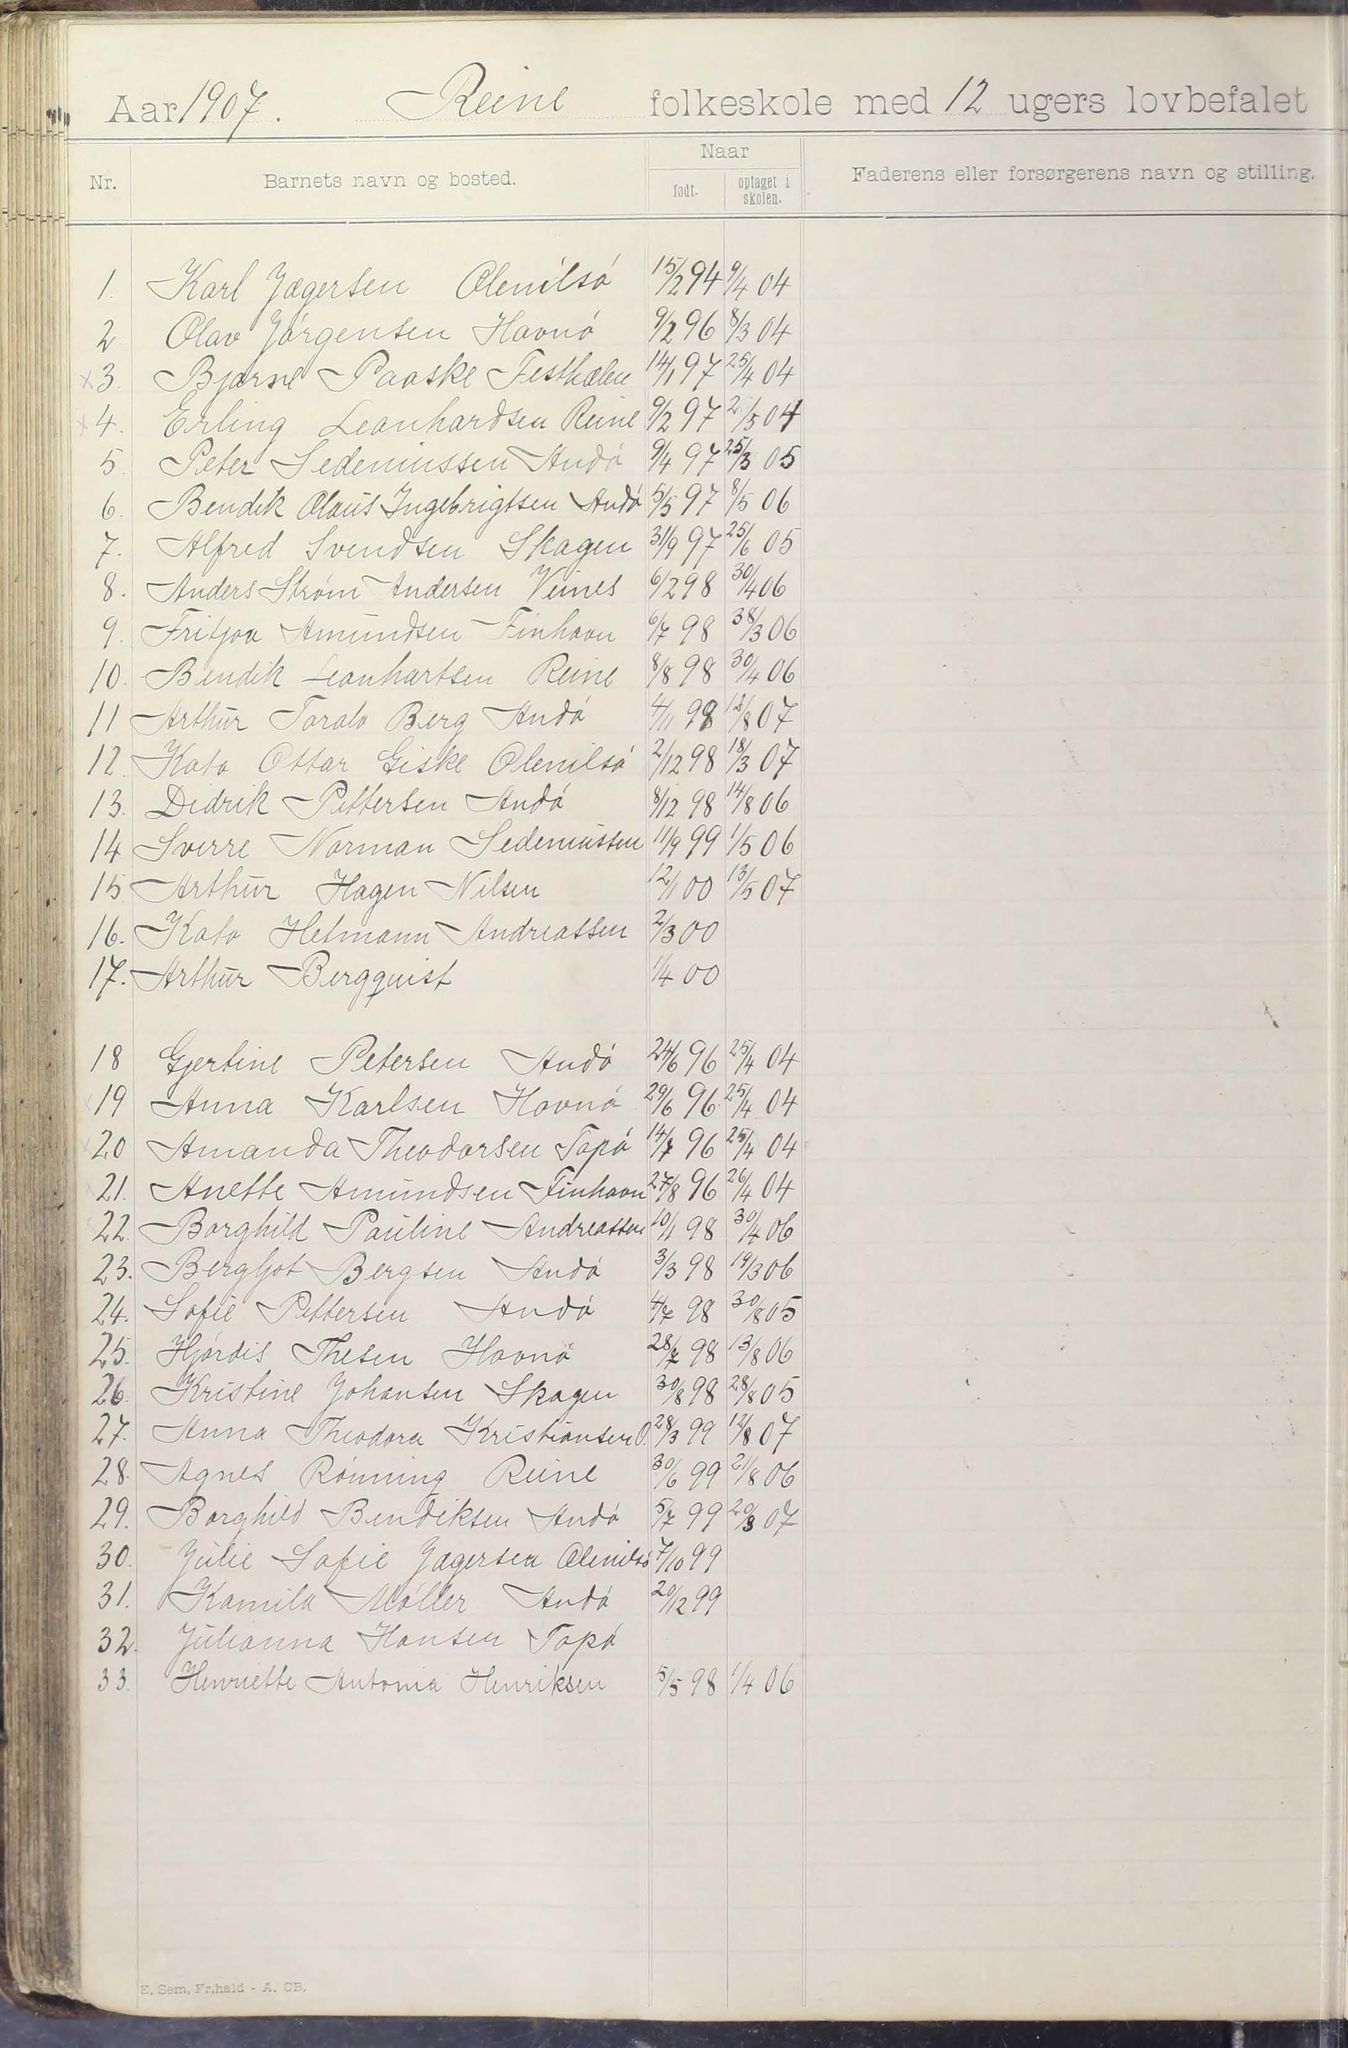 Aar 1907. Reine folkeskole med 12 ugers lovbefalet
Naar
Nr. Barnets navn og bosted. født. optaget i skolen. Faderens eller forsørgerens navn og stilling.
1. Karl Jægersen Olenilsö 15/2 94 9/4 04
2 Olav Jörgensen Havnö 9/2 96 8/3 04
x3. Bjarne Paaske Festhælen 14/1 97 25/4 04
x4. Erling Leonhardsen Reine 9/2 97 2/5 04
5 Peter Sedeniussen Andö 9/4 97 25/3 05
6. Bendik Olaus Ingebrigtsen Andö 5/5 97 8/5 06
7. Alfred Svendsen Skagen 31/9 97 25/6 05
8. Anders Strøm Andersen Veines 6/2 98 30/4 06
9. Fritjov Amundsen Finhavn 6/7 98 38/3 06
10. Bendik Leonhartsen Reine 8/8 98 30/4 06
11 Arthur Toralv Berg Andö 4/11 98 12/8 07
12. Kato Ottar Giske Olenilsö 2/12 98 18/3 07
13. Didrik Pettersen Andö 8/12 98 14/8 06
14 Sverre Norman Sedeniussen 11/9 99 1/5 06
15 Arthur Hagen Nilsen 12/1 00 13/5 07
16. Kato Helmann Andreassen 2/3 00
17. Arthur Bergquist 1/4 00
18 Gjertine Petersen Andö 24/6 96 25/4 04
19 Anna Karlsen Havnö 29/6 96 25/4 04
20 Amanda Theodorsen Topö 14/7 96 25/4 04
21. Anette Amundsen Finhavn 27/8 96 26/4 04
22. Borghild Pauline Andreassen 10/1 98 30/4 06
23. Bergljot Bergsen Andö 3/3 98 19/3 06
24. Sofie Pettersen Andö 4/7 98 30/8 05
25. Hjördis Thesen Havnö 28/7 98 13/8 06
26. Kristine Johansen Skagen 30/8 98 28/8 05
27. Anna Theodora Kristiansen O. 28/3 99 12/8 07
28. Agnes Rönning Reine 30/6 99 21/8 06
29. Borghild Bendiksen Andö 5/7 99 20/8 07
30. Julie Sofie Jægersen Olenilsö 7/10 99
31. Kamila Möller Andö 20/12 99
32. Julianna Hansen Topö
33. Henriette Antonia Henriksen 5/5 98 1/4 06
E. Sem, Fr.hald - A. CB.